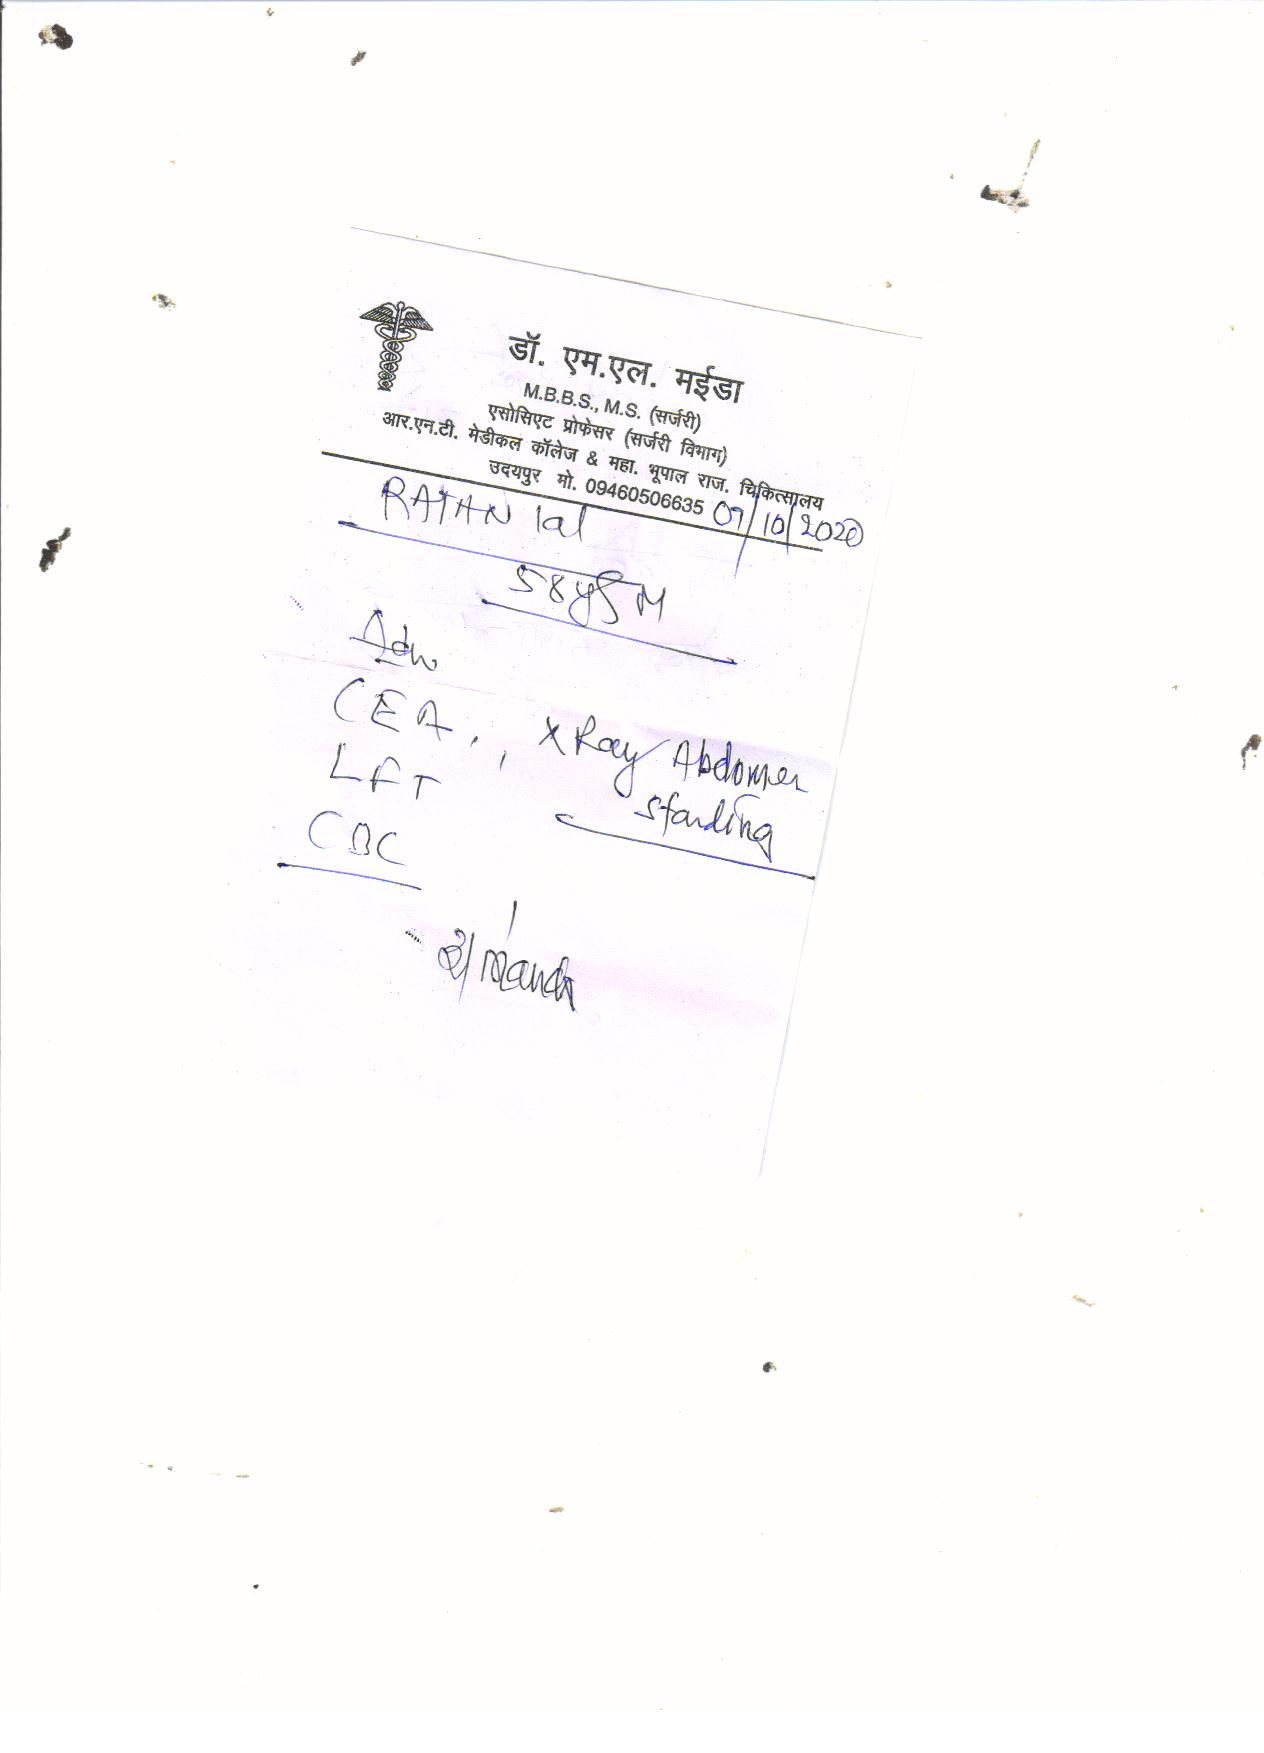 डॉ. एम.एल. मईडा
M.B.B.S., M.S. (सर्जरी)
एसोसिएट प्रोफेसर (सर्जरी विभाग)
आर.एन.टी. मेडीकल कॉलेज & महा. भूपाल राज. चिकित्सालय
उदयपुर मो. 09460506635
07/10/2020
RATAN lal
58ys M
Adv
CEA, , X Ray Abdomen
LFT standing
CBC